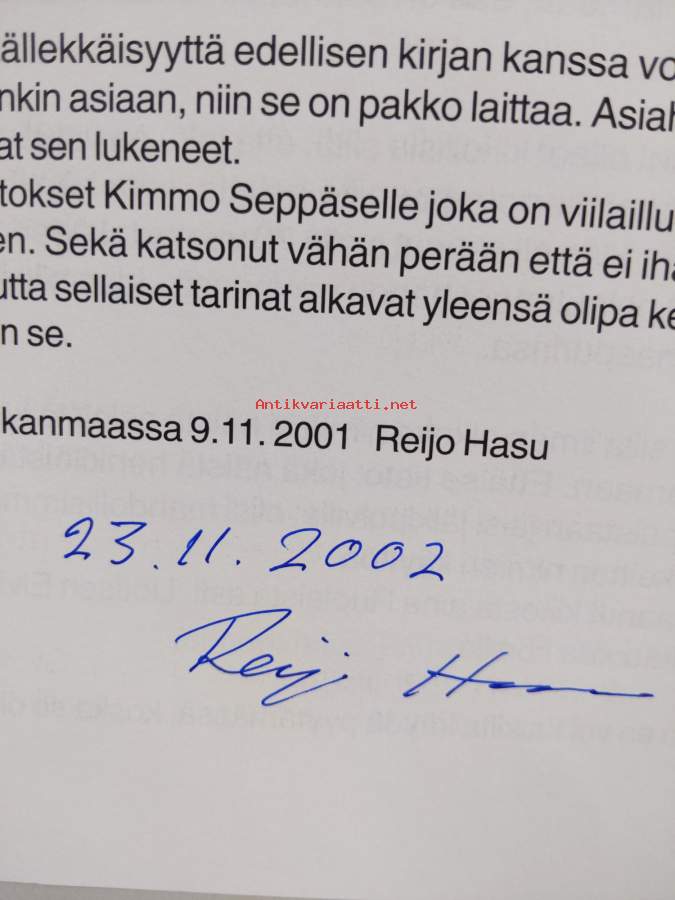 ällekkäisyyttä edellisen kirjan kanssa vo
nkin asiaan, niin se on pakko laittaa. Asiah
at sen lukeneet.
tokset Kimmo Seppäselle joka on viilaillu
en. Sekä katsonut vähän perään että ei iha
utta sellaiset tarinat alkavat yleensä olipa ke
n se.
Antikvariaatti.net
kanmaassa 9.11. 2001 Reijo Hasu
23.11.2002
Reijo Hasu